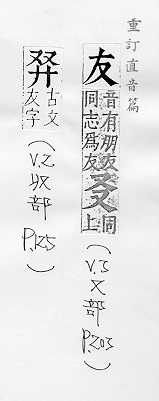 重訂直音篇
友
音有朋友
同志爲友
㕛
同上
(V.3 又部 P.203)
古文
友字
(V.2 収部 P.125)